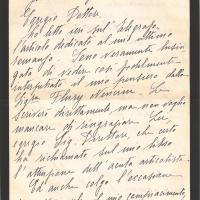 Egregio Dottore
Ho letto ieri sul Telegrafo
l'articolo dedicato al mio ultimo
romanzo. Sono veramente lusin
gata di veder così nobilmente
interpretato il mio pensiero dalla
Sigra Flury Nencini. Le
scriverò direttamente ma non voglio
mancare di ringraziare Lei
egregio Sig. Direttore, che certo
ha richiamato sul mio libro
l'attenzione dell'acuta articolista.
Ed anche colgo l'occasione
mio compiacimento